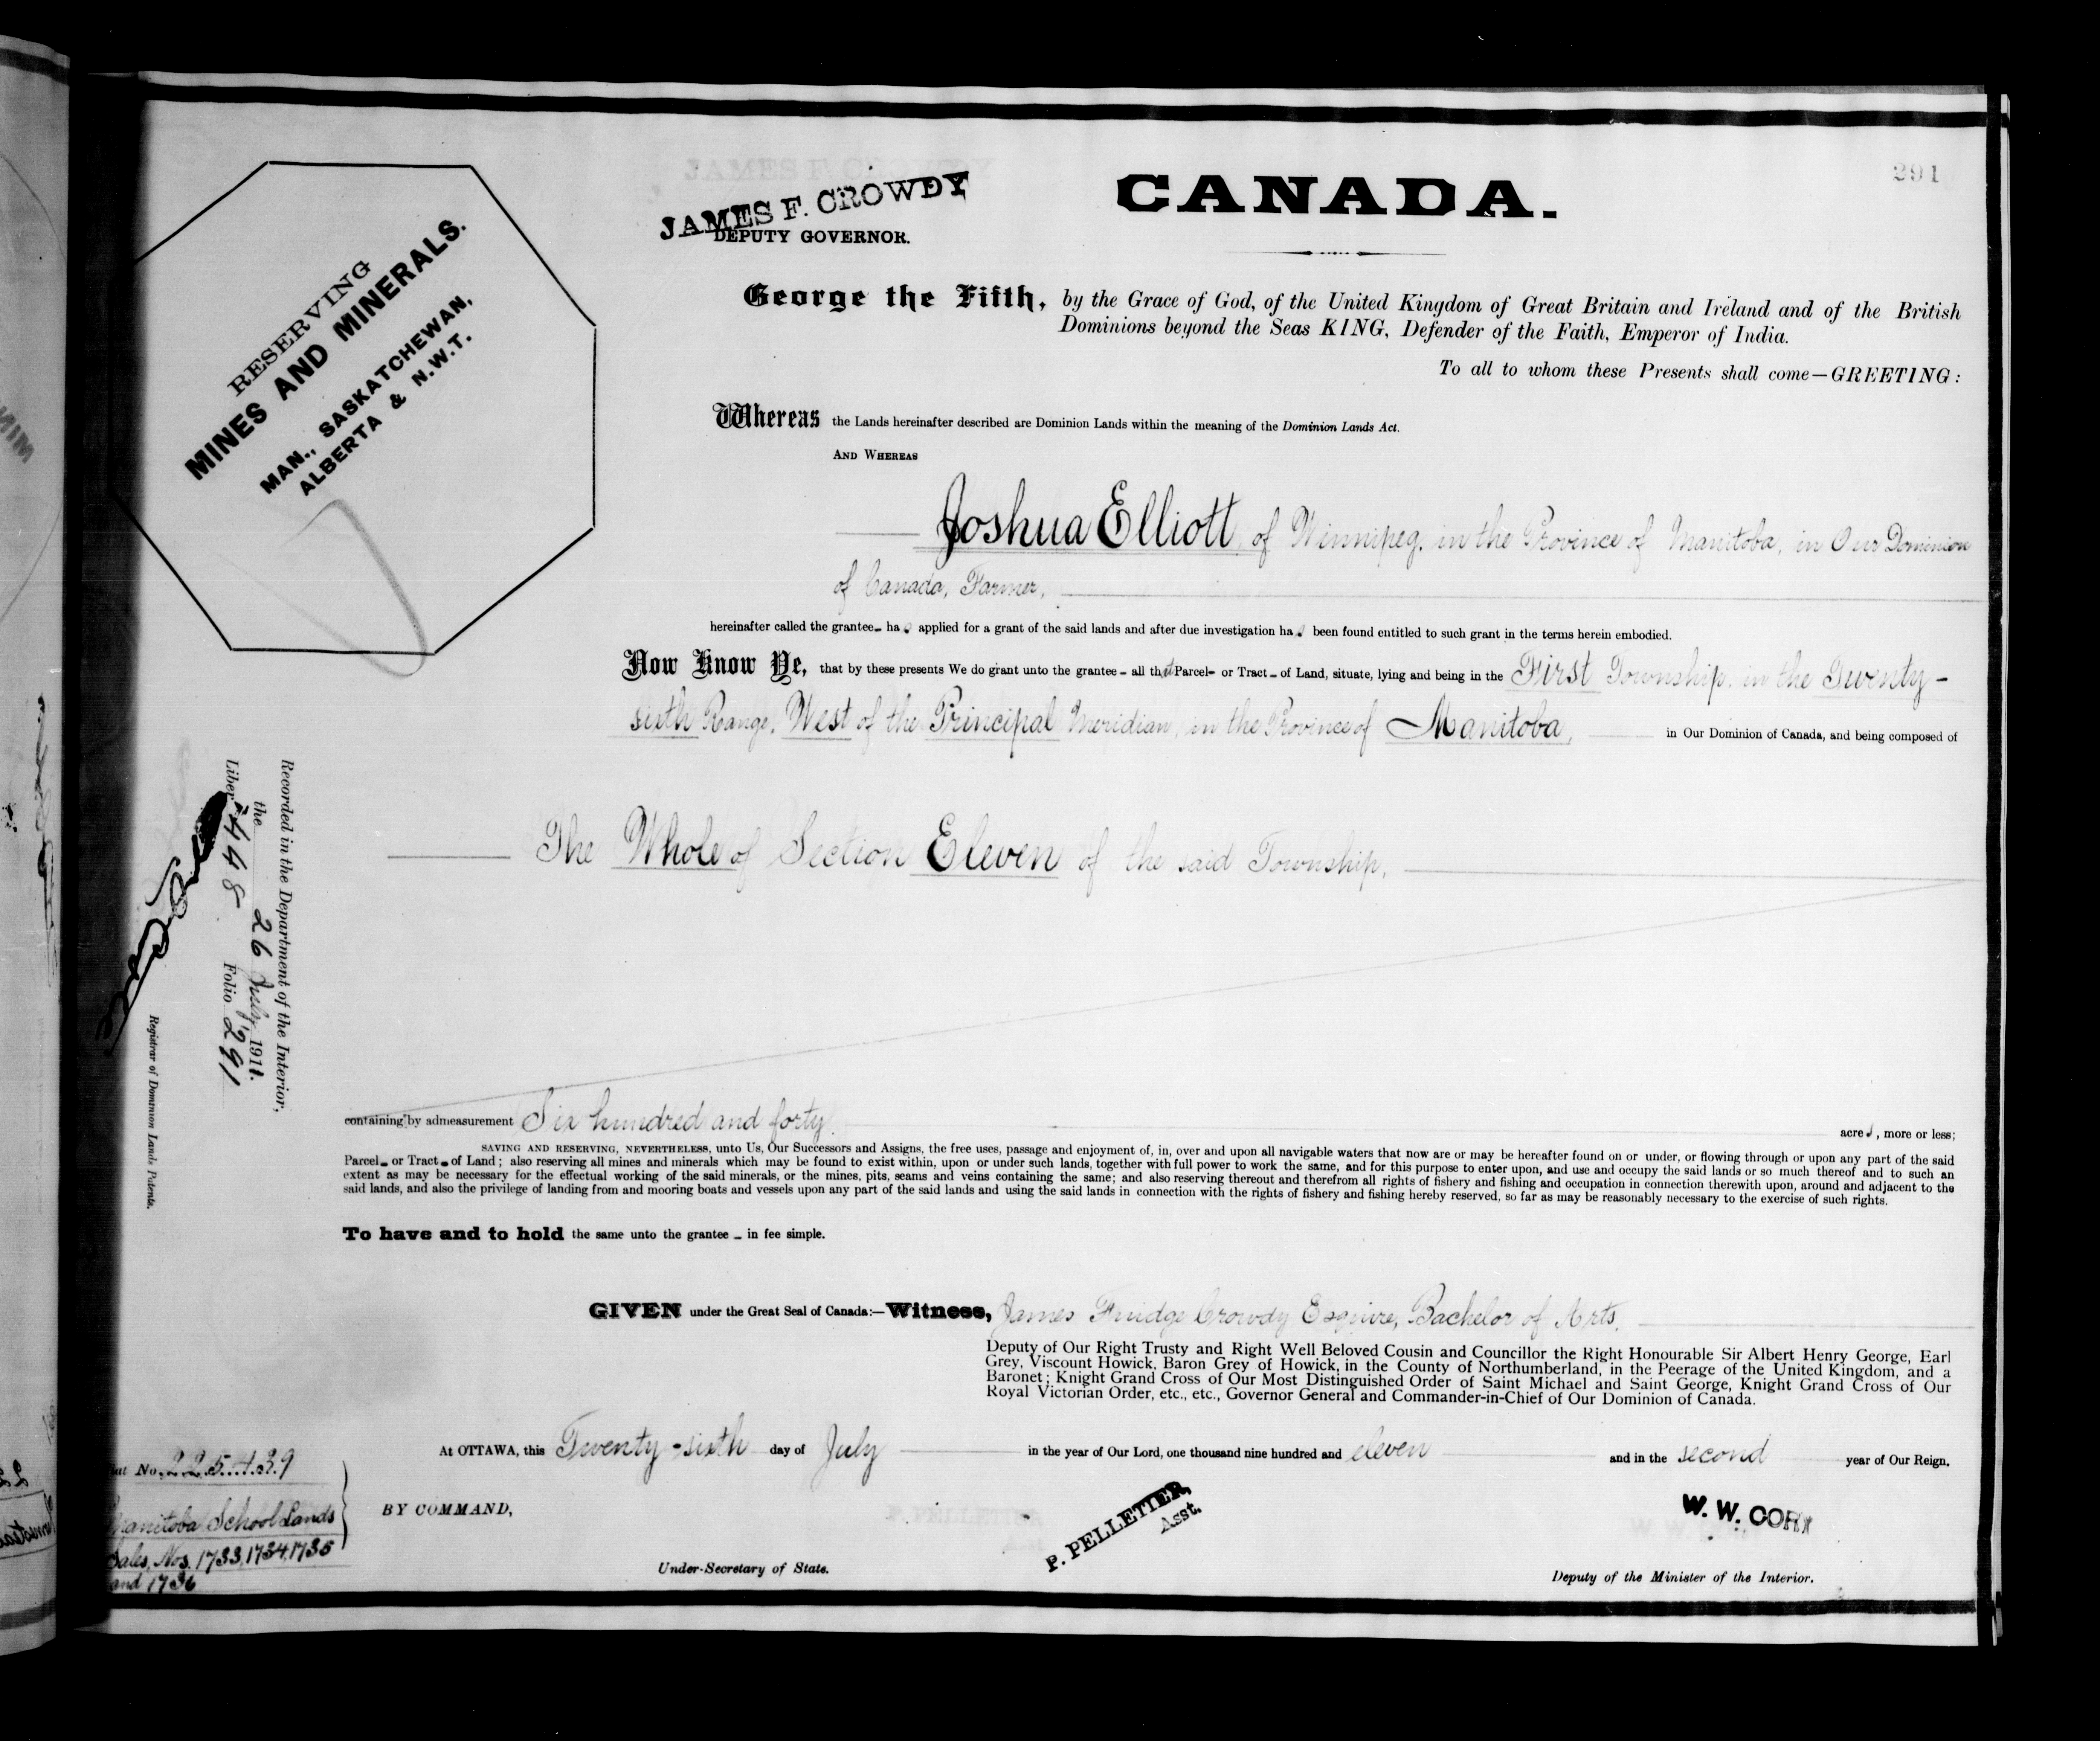 291
JAMES F. CROWDY
DEPUTY GOVERNOR.
CANADA.
RESERVING
MINES AND MINERALS.
MAN., SASKATCHEWAN,
ALBERTA & N.W.T.
George the Fifth, by the Grace of God, of the United Kingdom of Great Britain and Ireland and of the British
Dominions beyond the Seas KING, Defender of the Faith, Emperor of India.
To all to whom these Presents shall come—GREETING:
Whereas the Lands hereinafter described are Dominion Lands within the meaning of the Dominion Lands Act.
AND WHEREAS
Joshua Elliott, of Winnipeg, in the Province of Manitoba, in Our Dominion
of Canada, Farmer,
hereinafter called the grantee- has applied for a grant of the said lands and after due investigation has been found entitled to such grant in the terms herein embodied.
Now Know Ye, that by these presents We do grant unto the grantee - all that Parcel- or Tract - of Land, situate, lying and being in the First Township, in the Twenty-
sixth Range, West of the Principal Meridian, in the Province of Manitoba, in Our Dominion of Canada, and being composed of
The Whole of Section Eleven of the said Township,
Recorded in the Department of the Interior,
the 26 July, 1911.
Liber 448 Folio 291
Registrar of Dominion Lands Patents.
containing by admeasurement Six hundred and forty acres, more or less;
SAVING AND RESERVING, NEVERTHELESS, unto Us, Our Successors and Assigns, the free uses, passage and enjoyment of, in, over and upon all navigable waters that now are or may be hereafter found on or under, or flowing through or upon any part of the said
Parcel- or Tract - of Land; also reserving all mines and minerals which may be found to exist within, upon or under such lands, together with full power to work the same, and for this purpose to enter upon, and use and occupy the said lands or so much thereof and to such an
extent as may be necessary for the effectual working of the said minerals, or the mines, pits, seams and veins containing the same; and also reserving thereout and therefrom all rights of fishery and fishing and occupation in connection therewith upon, around and adjacent to the
said lands, and also the privilege of landing from and mooring boats and vessels upon any part of the said lands and using the said lands in connection with the rights of fishery and fishing hereby reserved, so far as may be reasonably necessary to the exercise of such rights.
To have and to hold the same unto the grantee - in fee simple.
GIVEN under the Great Seal of Canada:—Witness, James Fuidge Crowdy Esquire, Bachelor of Arts,
Deputy of Our Right Trusty and Right Well Beloved Cousin and Councillor the Right Honourable Sir Albert Henry George, Earl
Grey, Viscount Howick, Baron Grey of Howick, in the County of Northumberland, in the Peerage of the United Kingdom, and a
Baronet; Knight Grand Cross of Our Most Distinguished Order of Saint Michael and Saint George, Knight Grand Cross of Our
Royal Victorian Order, etc., etc., Governor General and Commander-in-Chief of Our Dominion of Canada.
At OTTAWA, this Twenty-sixth day of July in the year of Our Lord, one thousand nine hundred and eleven and in the second year of Our Reign.
No. 225439
Manitoba School Lands
Sales, Nos. 1733, 1734, 1735
and 1736
BY COMMAND,
P. PELLETIER,
Asst.
Under-Secretary of State.
W. W. CORY
Deputy of the Minister of the Interior.